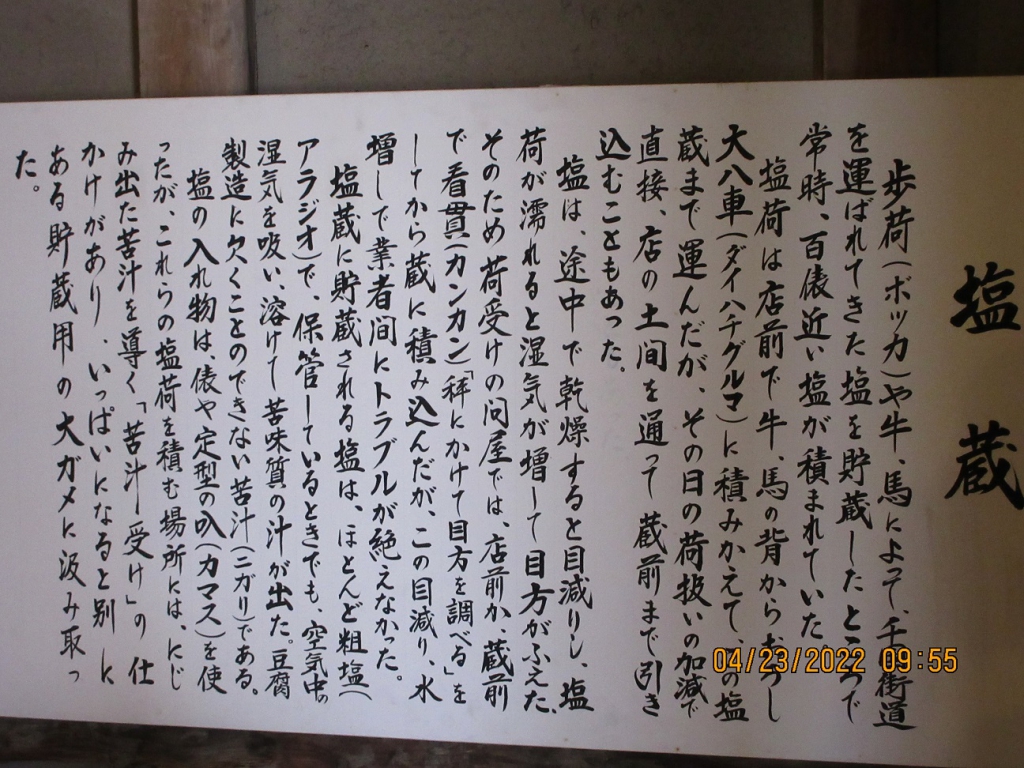 塩蔵
歩荷(ボッカ)や牛、馬によって、千国街道
を運ばれてきた塩を貯蔵したところで
常時、百俵近い塩が積まれていた。
塩荷は店前で牛、馬の背からおろし
大八車(ダイハチグルマ)に積みかえて、この塩
蔵まで運んだが、その日の荷扱いの加減で
直接、店の土間を通って蔵前まで引き
込むこともあった。
塩は、途中で乾燥すると目減りし、塩
荷が濡れると湿気が増して目方がふえた。
そのため荷受けの問屋では、店前か、蔵前
で看貫(カンカン)「秤にかけて目方を調べる」を
してから蔵に積み込んだが、この目減り、水
増しで業者間にトラブルが絶えなかった。
塩蔵に貯蔵される塩は、ほとんど粗塩(
アラジオ)で、保管しているときでも、空気中の
湿気を吸い、溶けて苦味質の汁が出た。豆腐
製造に欠くことのできない苦汁(ニガリ)である。
塩の入れ物は、俵や定型の叺(カマス)を使
ったが、これらの塩荷を積む場所には、にじ
み出た苦汁を導く「苦汁受け」の仕
かけがあり、いっぱいになると別に
ある貯蔵用の大ガメに汲み取っ
た。
04/23/2022 09:55